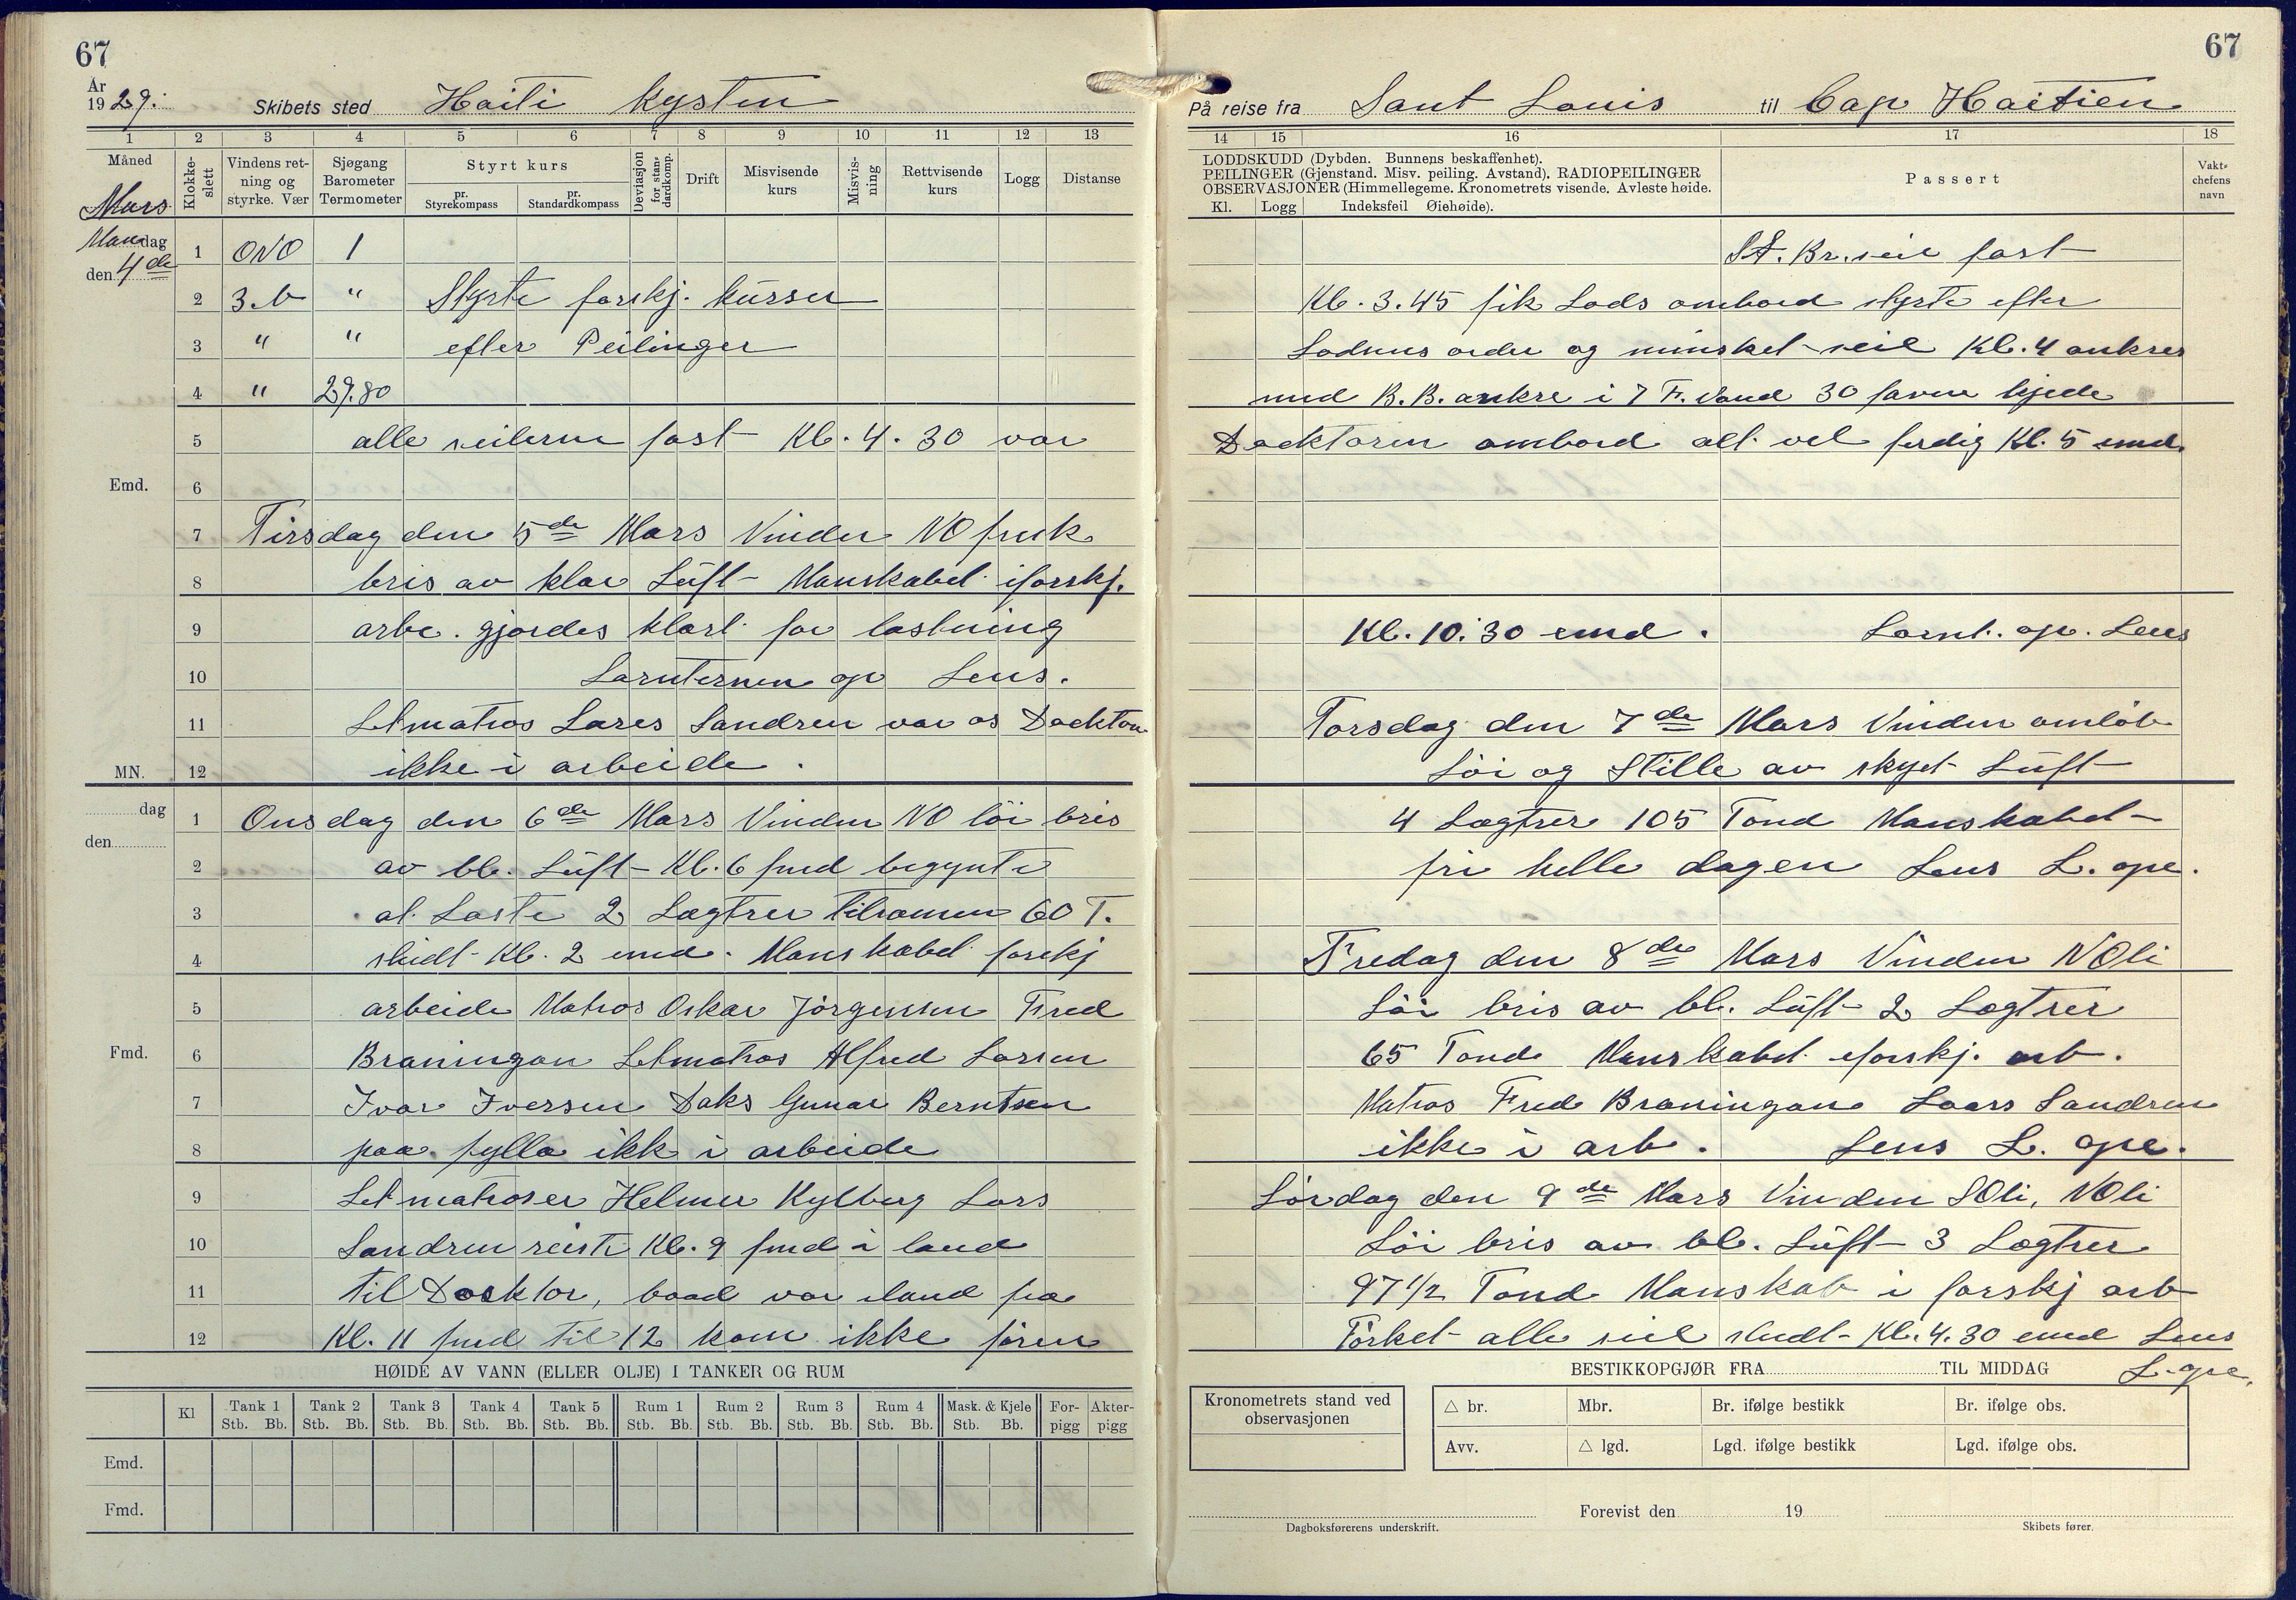 67
År
1929.
Skibets sted Haiti Kysten
1 2 3 4 5 6 7 8 9 10 11 12 13
Måned
Mars
Klokkeslett
Vindens retning og styrke. Vær
Sjøgang Barometer Termometer
Styrt kurs
pr. Styrekompass
pr. Standardkompass
Deviasjon for standardkomp.
Drift
Misvisende kurs
Misvisning
Rettvisende kurs
Logg
Distanse
Mandag
den 4de
1 ONO 1
2 3.b " Styrte forskj. kurser
3 " " efter Peilinger
4 " 29.80
5 alle seilerne fast Kl. 4.30 var
Emd. 6
7 Tirsdag den 5de Mars Vinden NO frisk
8 bris av klar Luft Manskabet iforskj.
9 arbe. gjordes klart for lastning
10 Lanternen op Lens.
11 Letmatros Lars Sandren var os Docktor
MN. 12 ikke i arbeide.
dag
den
1 Onsdag den 6de Mars Vinden NO löi bris
2 av bl. Luft Kl. 6 fmd begynte
3 at Laste 2 Lægtrer tilsamen 60 T.
4 sludt Kl. 2 emd. Manskabet forskj
5 arbeide Matros Oskar Jörgensen Fred
Fmd. 6 Braningan Letmatros Alfred Larsen
7 Ivar Iversen Daks Gunar Berntsen
8 paa fylla ikk i arbeide
9 Letmatroser Helmer Kylberg Lars
10 Sandren reiste Kl. 9 fmd i land
11 til Docktor, baad var iland fra
12 Kl. 11 fmd til 12 kom ikke fören
HØIDE AV VANN (ELLER OLJE) I TANKER OG RUM
Kl Tank 1 Tank 2 Tank 3 Tank 4 Tank 5 Rum 1 Rum 2 Rum 3 Rum 4 Mask. & Kjele Forpigg Akterpigg
Stb. Bb. Stb. Bb. Stb. Bb. Stb. Bb. Stb. Bb. Stb. Bb. Stb. Bb. Stb. Bb. Stb. Bb. Stb. Bb.
Emd.
Fmd.
67
På reise fra Sant Louis til Cap Haitien
14 15 16 17 18
LODDSKUDD (Dybden. Bunnens beskaffenhet).
PEILINGER (Gjenstand. Misv. peiling. Avstand). RADIOPEILINGER
OBSERVASJONER (Himmellegeme. Kronometrets visende. Avleste høide.
Kl. Logg Indeksfeil Øiehøide).
Passert
Vaktchefens navn
St. Br. seil fast
Kl. 3.45 fik Lods ombord styrte efter
Lodsens order og minsket seil Kl. 4 ankres
med B.B. ankre i 7 F. Vand 30 favne kjede
Docktoren ombord alt vel ferdig Kl. 5 emd.
Kl. 10.30 emd. Lant. op. Lens
Torsdag den 7de Mars Vinden omlöb
Löi og Stille av skyet Luft
4 Lægtrer 105 Tond Manskabet
fri helle dagen Lens L. ope.
Fredag den 8de Mars Vinden NOli
Löi bris av bl. Luft 2 Lægtrer
65 Tond Manskabet iforskj. arb.
Matros Fred Braningan Laars Sandren
ikke i arb. Lens L. ope.
Lördag den 9de Mars Vinden SOli, NOli
Löi bris av bl. Luft 3 Lægtrer
97 1/2 Tond Manskab i forskj arb
Törket alle seil sludt Kl. 4.30 emd Lens
L. ope.
BESTIKKOPGJØR FRA TIL MIDDAG
Kronometrets stand ved observasjonen
△ br. Mbr. Br. ifølge bestikk Br. ifølge obs.
Avv. △ lgd. Lgd. ifølge bestikk Lgd. ifølge obs.
Forevist den 19
Dagboksførerens underskrift.
Skibets fører.